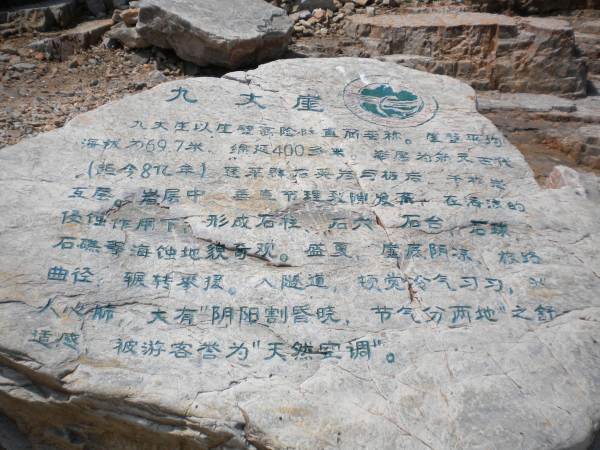 九丈崖
九丈崖以崖壁高险陡直而名称。崖壁平均
海拔为69.7米，绵延400多米。岩层为新元古代
(距今8亿年) 蓬莱群石英岩与板岩、千枚岩
互层。岩层中，垂直节理裂隙发育，在海浪的
侵蚀作用下，形成石柱、石穴、石台、石
石礁等海蚀地貌奇观。盛夏，崖底阴凉，栈路
曲径，辗转攀援。入隧道，顿觉冷气习习，沁
人心肺，大有"阴阳割昏晓，节气分两地"之舒
适感，被游客誉为"天然空调"。